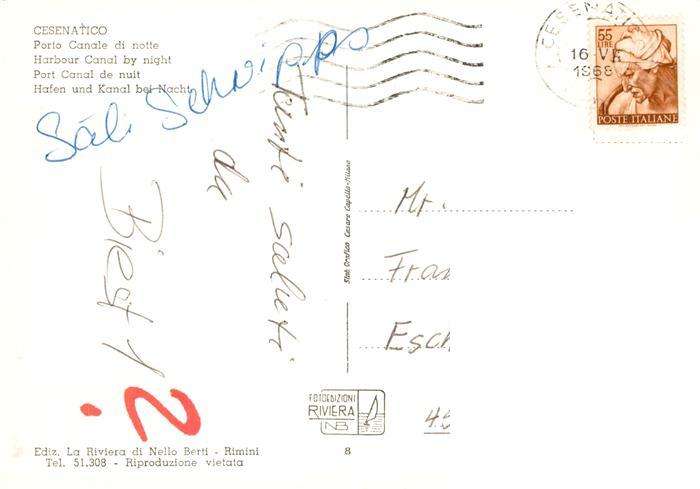 CESENATICO
Porto Canale di notte
Harbour Canal by night
Port Canal de nuit
Hafen und Kanal bei Nacht
Säli Schwipps
Tanti saluti
da
Biest 1
2.
Stab. Grafico Cesare Capello-Milano
CESENATI
16 VII
1968
55
LIRE
POSTE ITALIANE
Mr.
Fran
Esch
FOTOEDIZIONI
RIVIERA
NB
Ediz. La Riviera di Nello Berti - Rimini
Tel. 51.308 - Riproduzione vietata
8